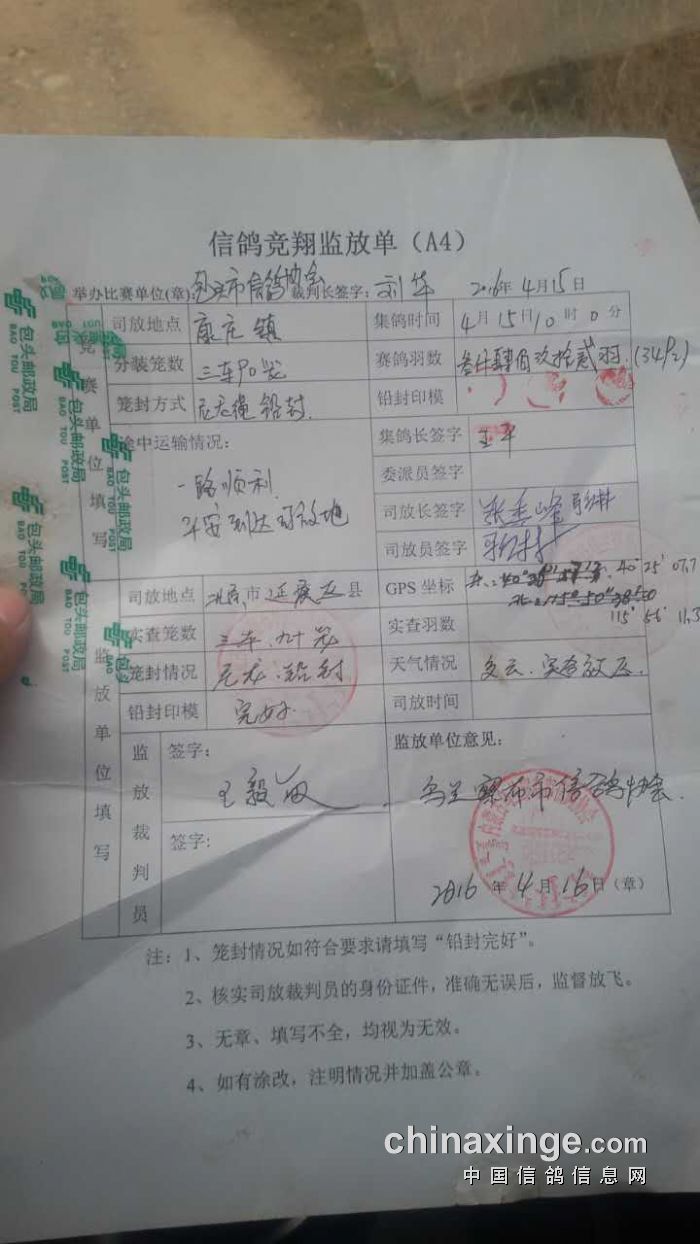 信鸽竞翔监放单（A4）
举办比赛单位(章): 包头市信鸽协会 裁判长签字: 刘华 2016年4月15日
竞赛单位填写
司放地点 康庄镇 集鸽时间 4月15日10时0分
分装笼数 三车90笼 赛鸽羽数 叁仟肆佰玖拾贰羽.(3492)
笼封方式 尼龙绳铅封. 铅封印模
途中运输情况: 集鸽长签字 王平
一路顺利 委派员签字
平安到达司放地 司放长签字
司放员签字
监放单位填写
司放地点 北京市延庆区县 GPS坐标 40°25′07.7
115°56′11.3
实查笼数 三车.九十笼 实查羽数
笼封情况 尼龙.铅封 天气情况 多云.
铅封印模 完好. 司放时间
监放裁判员
签字: 王毅 监放单位意见:
乌兰察布市信鸽协会
签字:
2016年4月16日(章)
注：1、笼封情况如符合要求请填写“铅封完好”。
2、核实司放裁判员的身份证件，准确无误后，监督放飞。
3、无章、填写不全，均视为无效。
4、如有涂改，注明情况并加盖公章。
包头邮政局
BAO TOU POST
包头邮政局
BAO TOU POST
包头邮政局
BAO TOU POST
包头邮政局
BAO TOU POST
chinaxinge.com
中国信鸽信息网